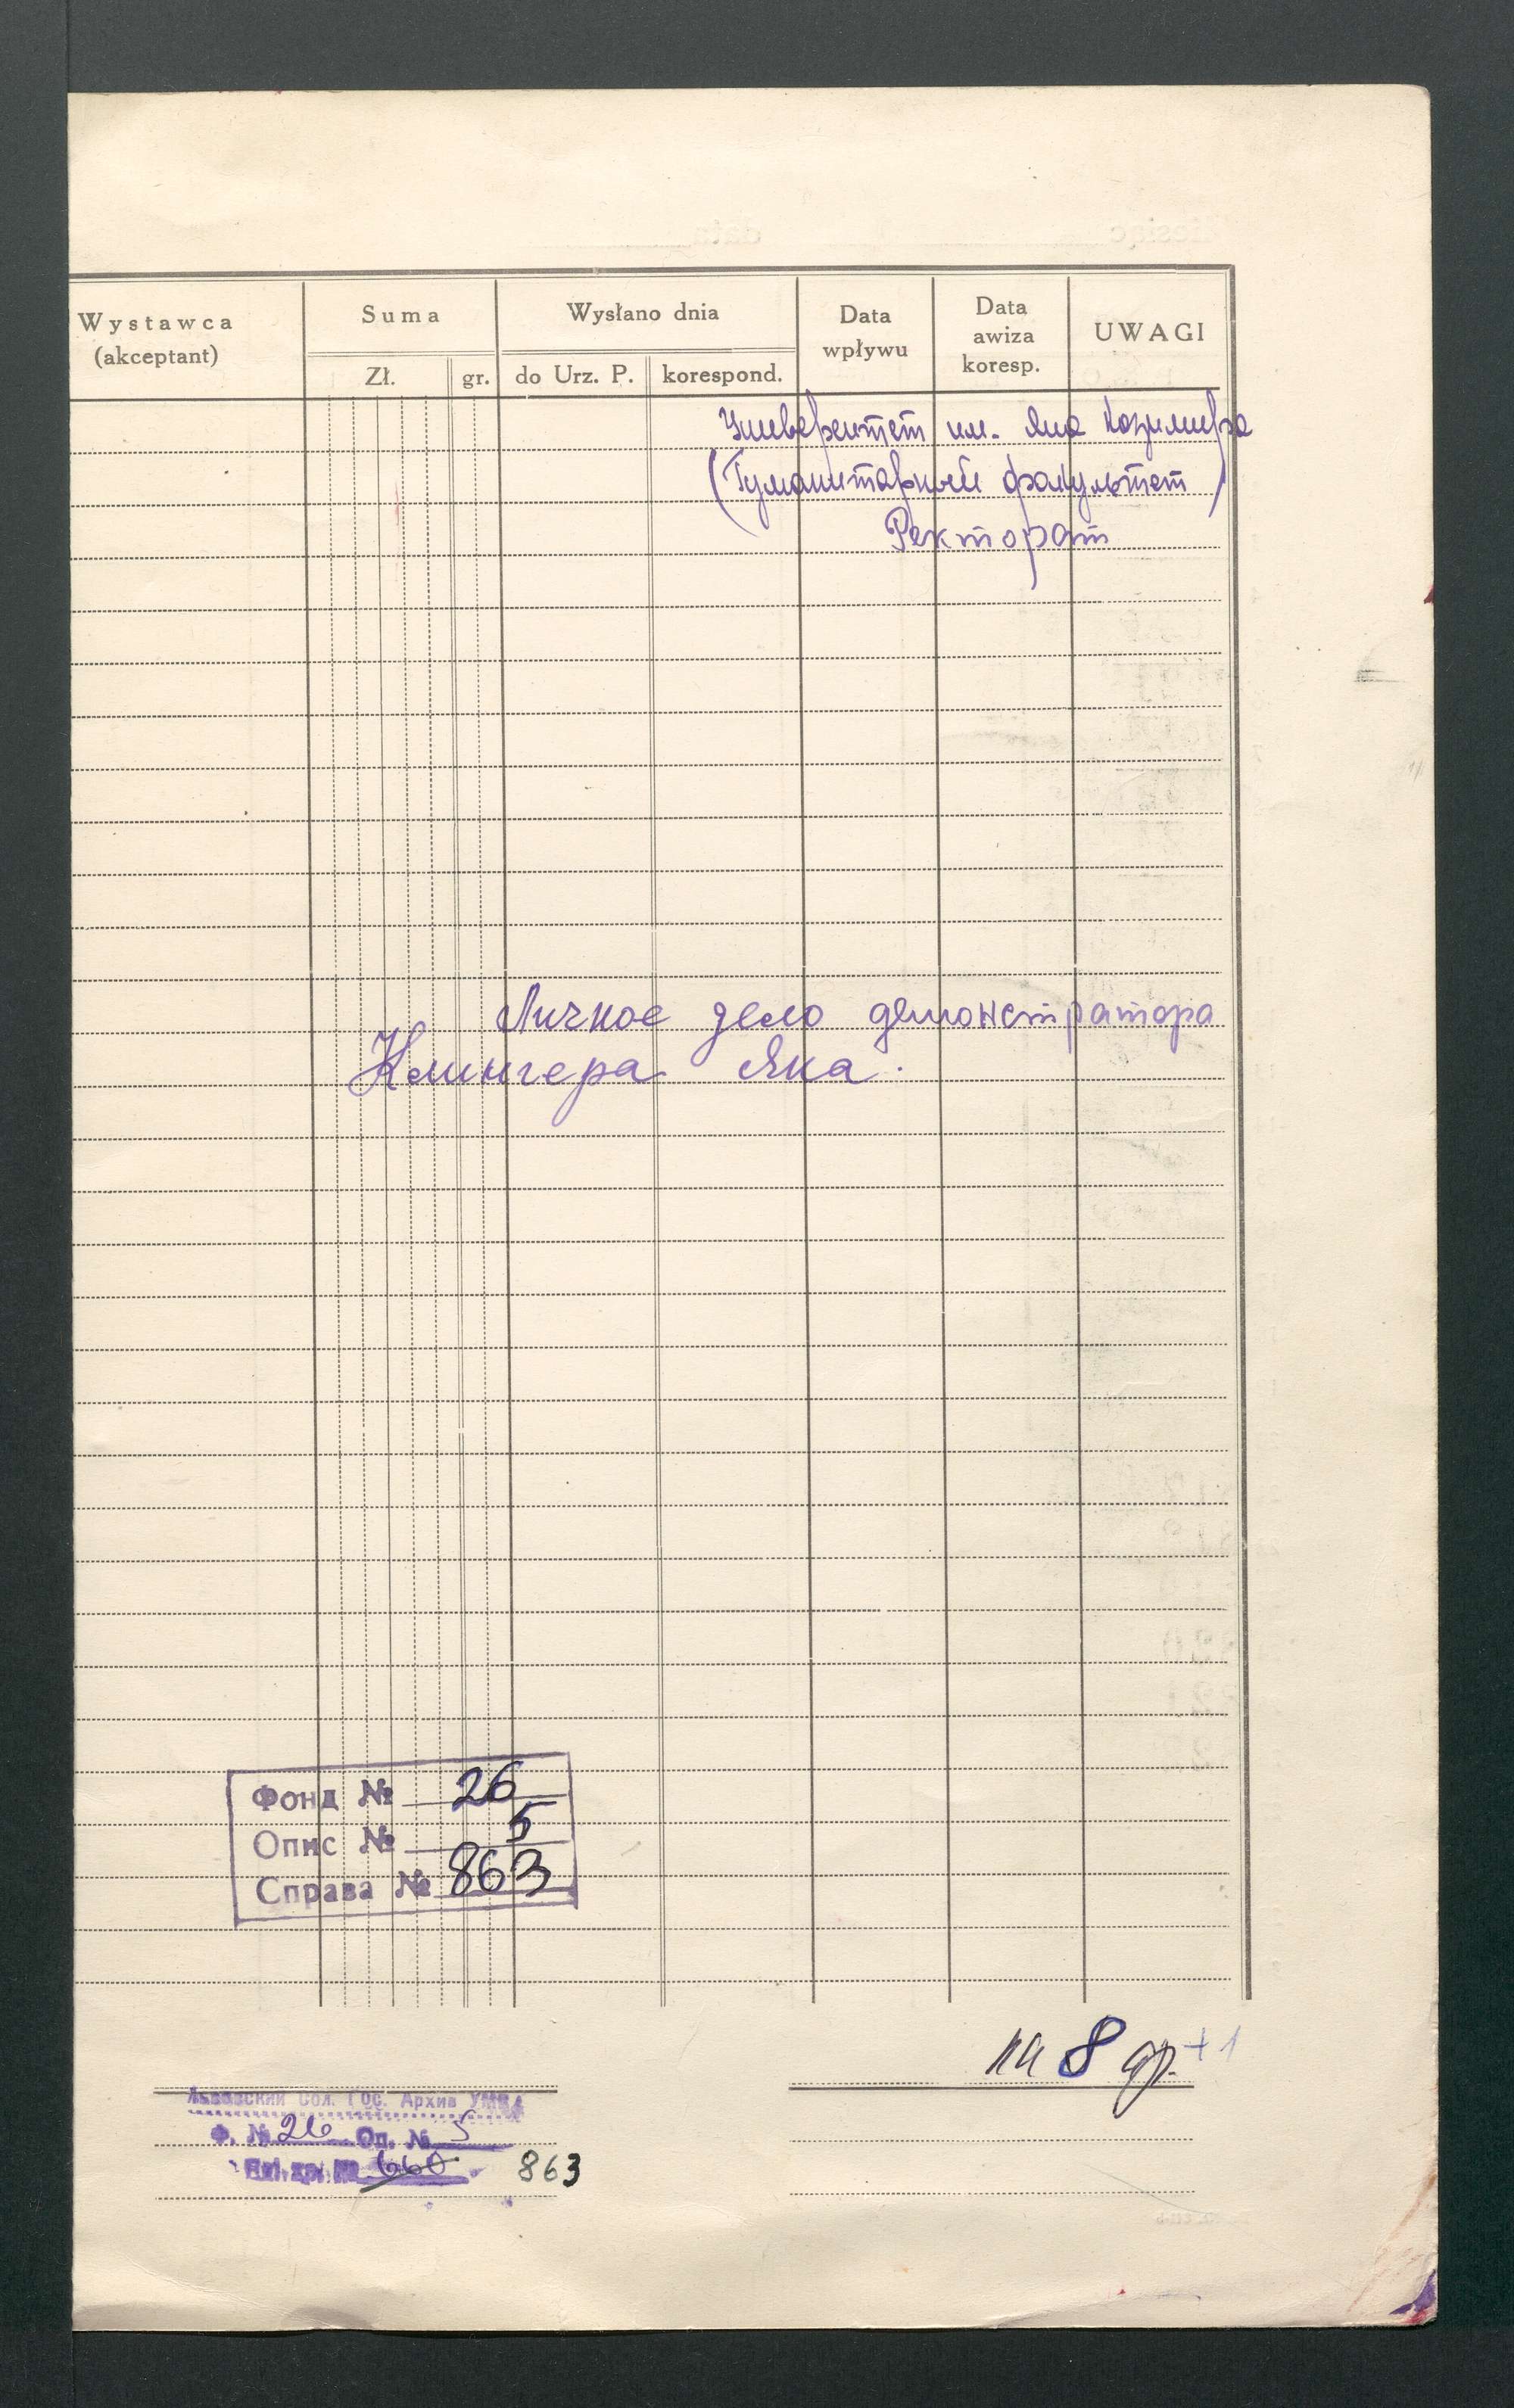 Wystawca
(akceptant)
Suma
Zł.
gr.
Wysłano dnia
do Urz. P.
korespond.
Data
wpływu
Data
awiza
koresp.
UWAGI
Университет им. Яна Казимира
(Гуманитарный факультет)
Ректорат
Личное дело демонстратора
Клингера Яна.
Фонд № 26
Опис № 5
Справа № 863
на 8 др. +1
Львовский Обл. Гос. Архив УМВД
Ф. № 26 Оп. № 5
Ед. хр. № 660 863